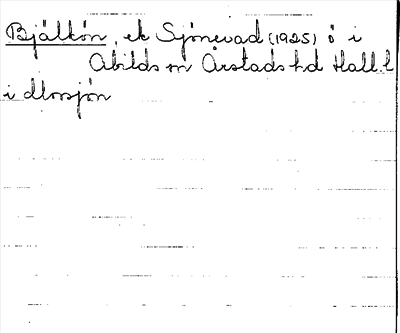 Bjälkön, ek Sjönevad (1925) ö i
Abilds sn Årstads hd Hall. l
i dlorsjön